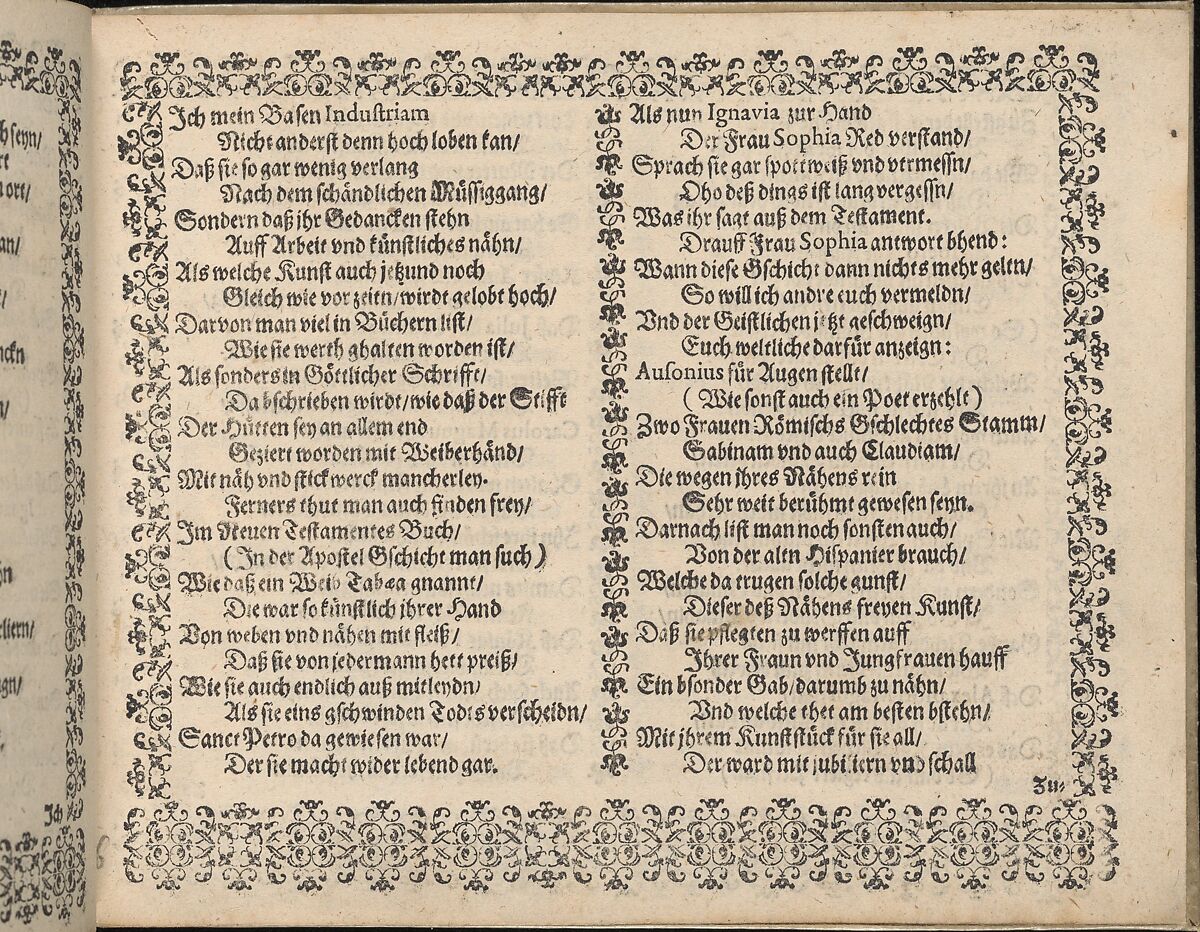 Ich mein Basen Industriam
Nicht anderst denn hoch loben kan/
Daß sie so gar wenig verlang
Nach dem schändlichen Müssiggang/
Sondern daß jhr Gedancken stehn
Auff Arbeit vnd künstliches nähn/
Als welche Kunst auch jetzund noch
Gleich wie vor zeitn/wirdt gelobt hoch/
Darvon man viel in Büchern list/
Wie sie werth ghalten worden ist/
Als sonders in Göttlicher Schrifft/
Da bschrieben wirdt/wie daß der Stifft
Der Hütten sey an allem end
Geziert worden mit Weiberhänd/
Mit näh vnd stickwerck mancherley.
Ferners thut man auch finden frey/
Im Neuen Testamentes Buch/
(In der Apostel Gschicht man such)
Wie daß ein Weib Tabæa gnannt/
Die war so künstlich jhrer Hand
Von weben vnd nähen mit fleiß/
Daß sie von jedermann hett preiß/
Wie sie auch endlich auß mitleydn/
Als sie eins gschwinden Todts verscheidn/
Sanct Petro da gewiesen war/
Der sie macht wider lebend gar.
Als nun Ignavia zur Hand
Der Frau Sophia Red verstand/
Sprach sie gar spottweiß vnd vermessn/
Oho deß dings ist lang vergessn/
Was ihr sagt auß dem Testament.
Drauff Frau Sophia antwort bhend:
Wann diese Gschicht dann nichts mehr geltn/
So will ich andre euch vermeldn/
Vnd der Geistlichen jetzt geschweign/
Euch weltliche darfür anzeign:
Ausonius für Augen stellt/
(Wie sonst auch ein Poet erzehlt)
Zwo Frauen Römischs Gschlechtes Stamm/
Sabinam vnd auch Claudiam/
Die wegen jhres Nähens rein
Sehr weit berühmt gewesen seyn.
Darnach list man noch sonsten auch/
Von der altn Hispanier brauch/
Welche da trugen solche gunst/
Dieser deß Nähens freyen Kunst/
Daß sie pflegten zu werffen auff
Ihrer Fraun vnd Jungfrauen hauff
Ein bsonder Gab/darumb zu nähn/
Vnd welche thet am besten bstehn/
Mit jhrem Kunststück für sie all/
Der ward mit jubiliern vnd schall
Zu-
Ich